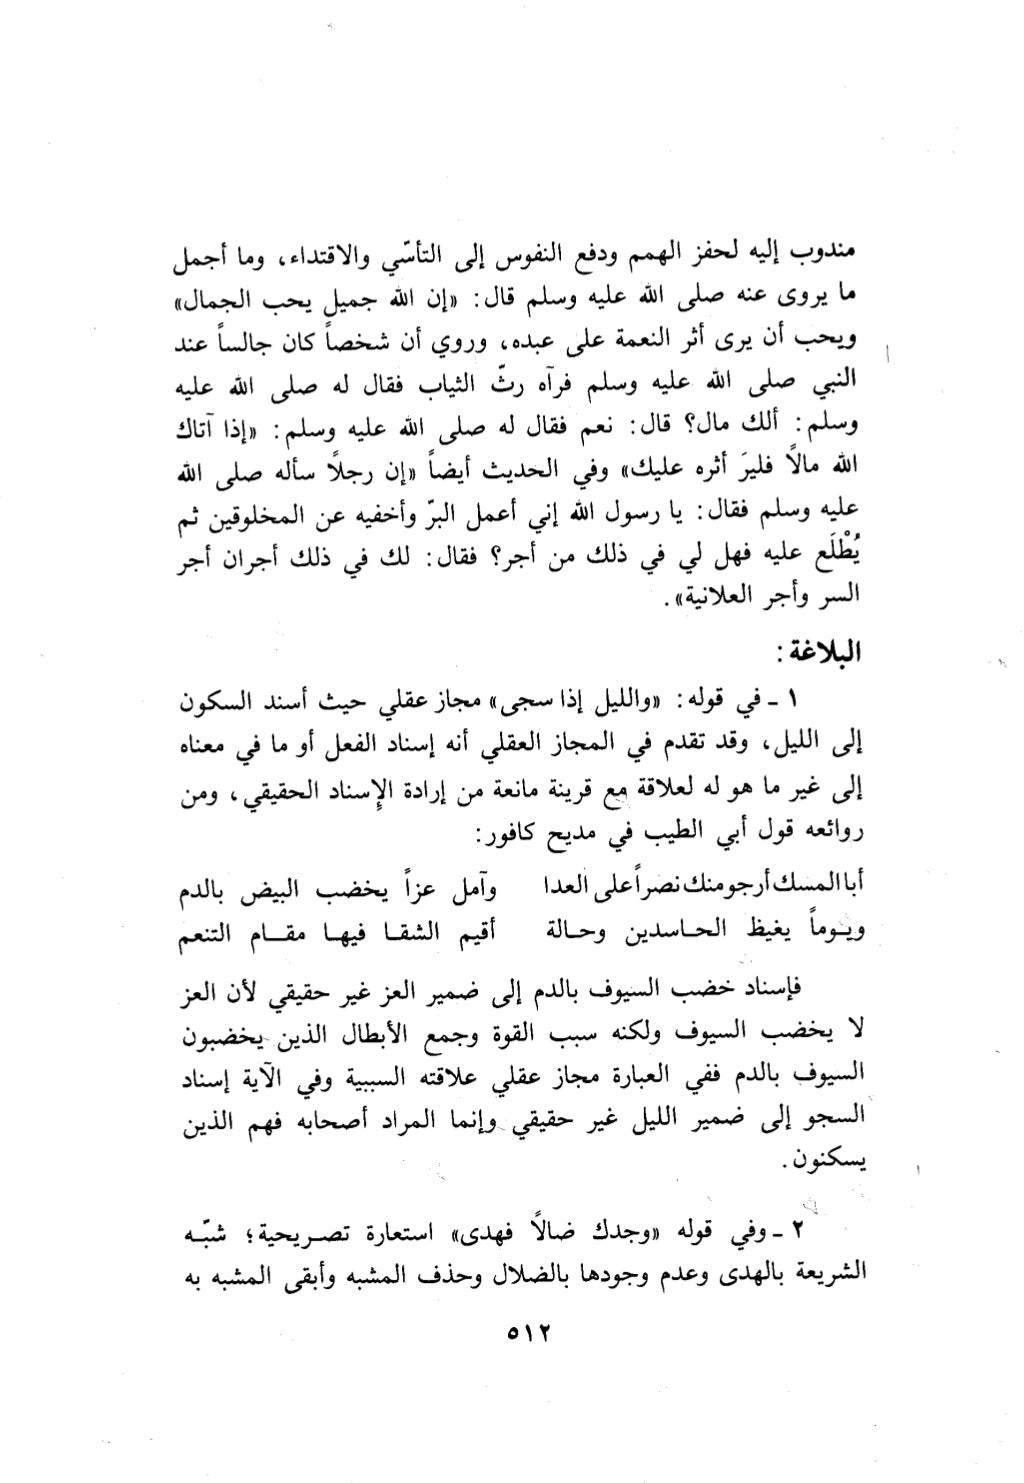 مندوب إليه لحفز الهمم ودفع النفوس إلى التأسّي والاقتداء، وما أجمل
ما يروى عنه صلى الله عليه وسلم قال: «إن الله جميل يحب الجمال»
ويحب أن يرى أثر النعمة على عبده، وروي أن شخصاً كان جالساً عند
النبي صلى الله عليه وسلم فرآه رثّ الثياب فقال له صلى الله عليه
وسلم: ألك مال؟ قال: نعم فقال له صلى الله عليه وسلم: «إذا آتاك
الله مالاً فليرَ أثره عليك» وفي الحديث أيضاً «إن رجلاً سأله صلى الله
عليه وسلم فقال: يا رسول الله إني أعمل البرّ وأخفيه عن المخلوقين ثم
يُطْلَع عليه فهل لي في ذلك من أجر؟ فقال: لك في ذلك أجران أجر
السر وأجر العلانية».
البلاغة:
١ ـ في قوله: «والليل إذا سجى» مجاز عقلي حيث أسند السكون
إلى الليل، وقد تقدم في المجاز العقلي أنه إسناد الفعل أو ما في معناه
إلى غير ما هو له لعلاقة مع قرينة مانعة من إرادة الإسناد الحقيقي، ومن
روائعه قول أبي الطيب في مديح كافور:
أبا المسك أرجو منك نصراً على العدا وآمل عزاً يخضب البيض بالدم
ويوماً يغيظ الحاسدين وحالة أقيم الشقا فيها مقام التنعم
فإسناد خضب السيوف بالدم إلى ضمير العز غير حقيقي لأن العز
لا يخضب السيوف ولكنه سبب القوة وجمع الأبطال الذين يخضبون
السيوف بالدم ففي العبارة مجاز عقلي علاقته السببية وفي الآية إسناد
السجو إلى ضمير الليل غير حقيقي وإنما المراد أصحابه فهم الذين
يسكنون.
٢ ـ وفي قوله «وجدك ضالاً فهدى» استعارة تصريحية؛ شبّه
الشريعة بالهدى وعدم وجودها بالضلال وحذف المشبه وأبقى المشبه به
٥١٢